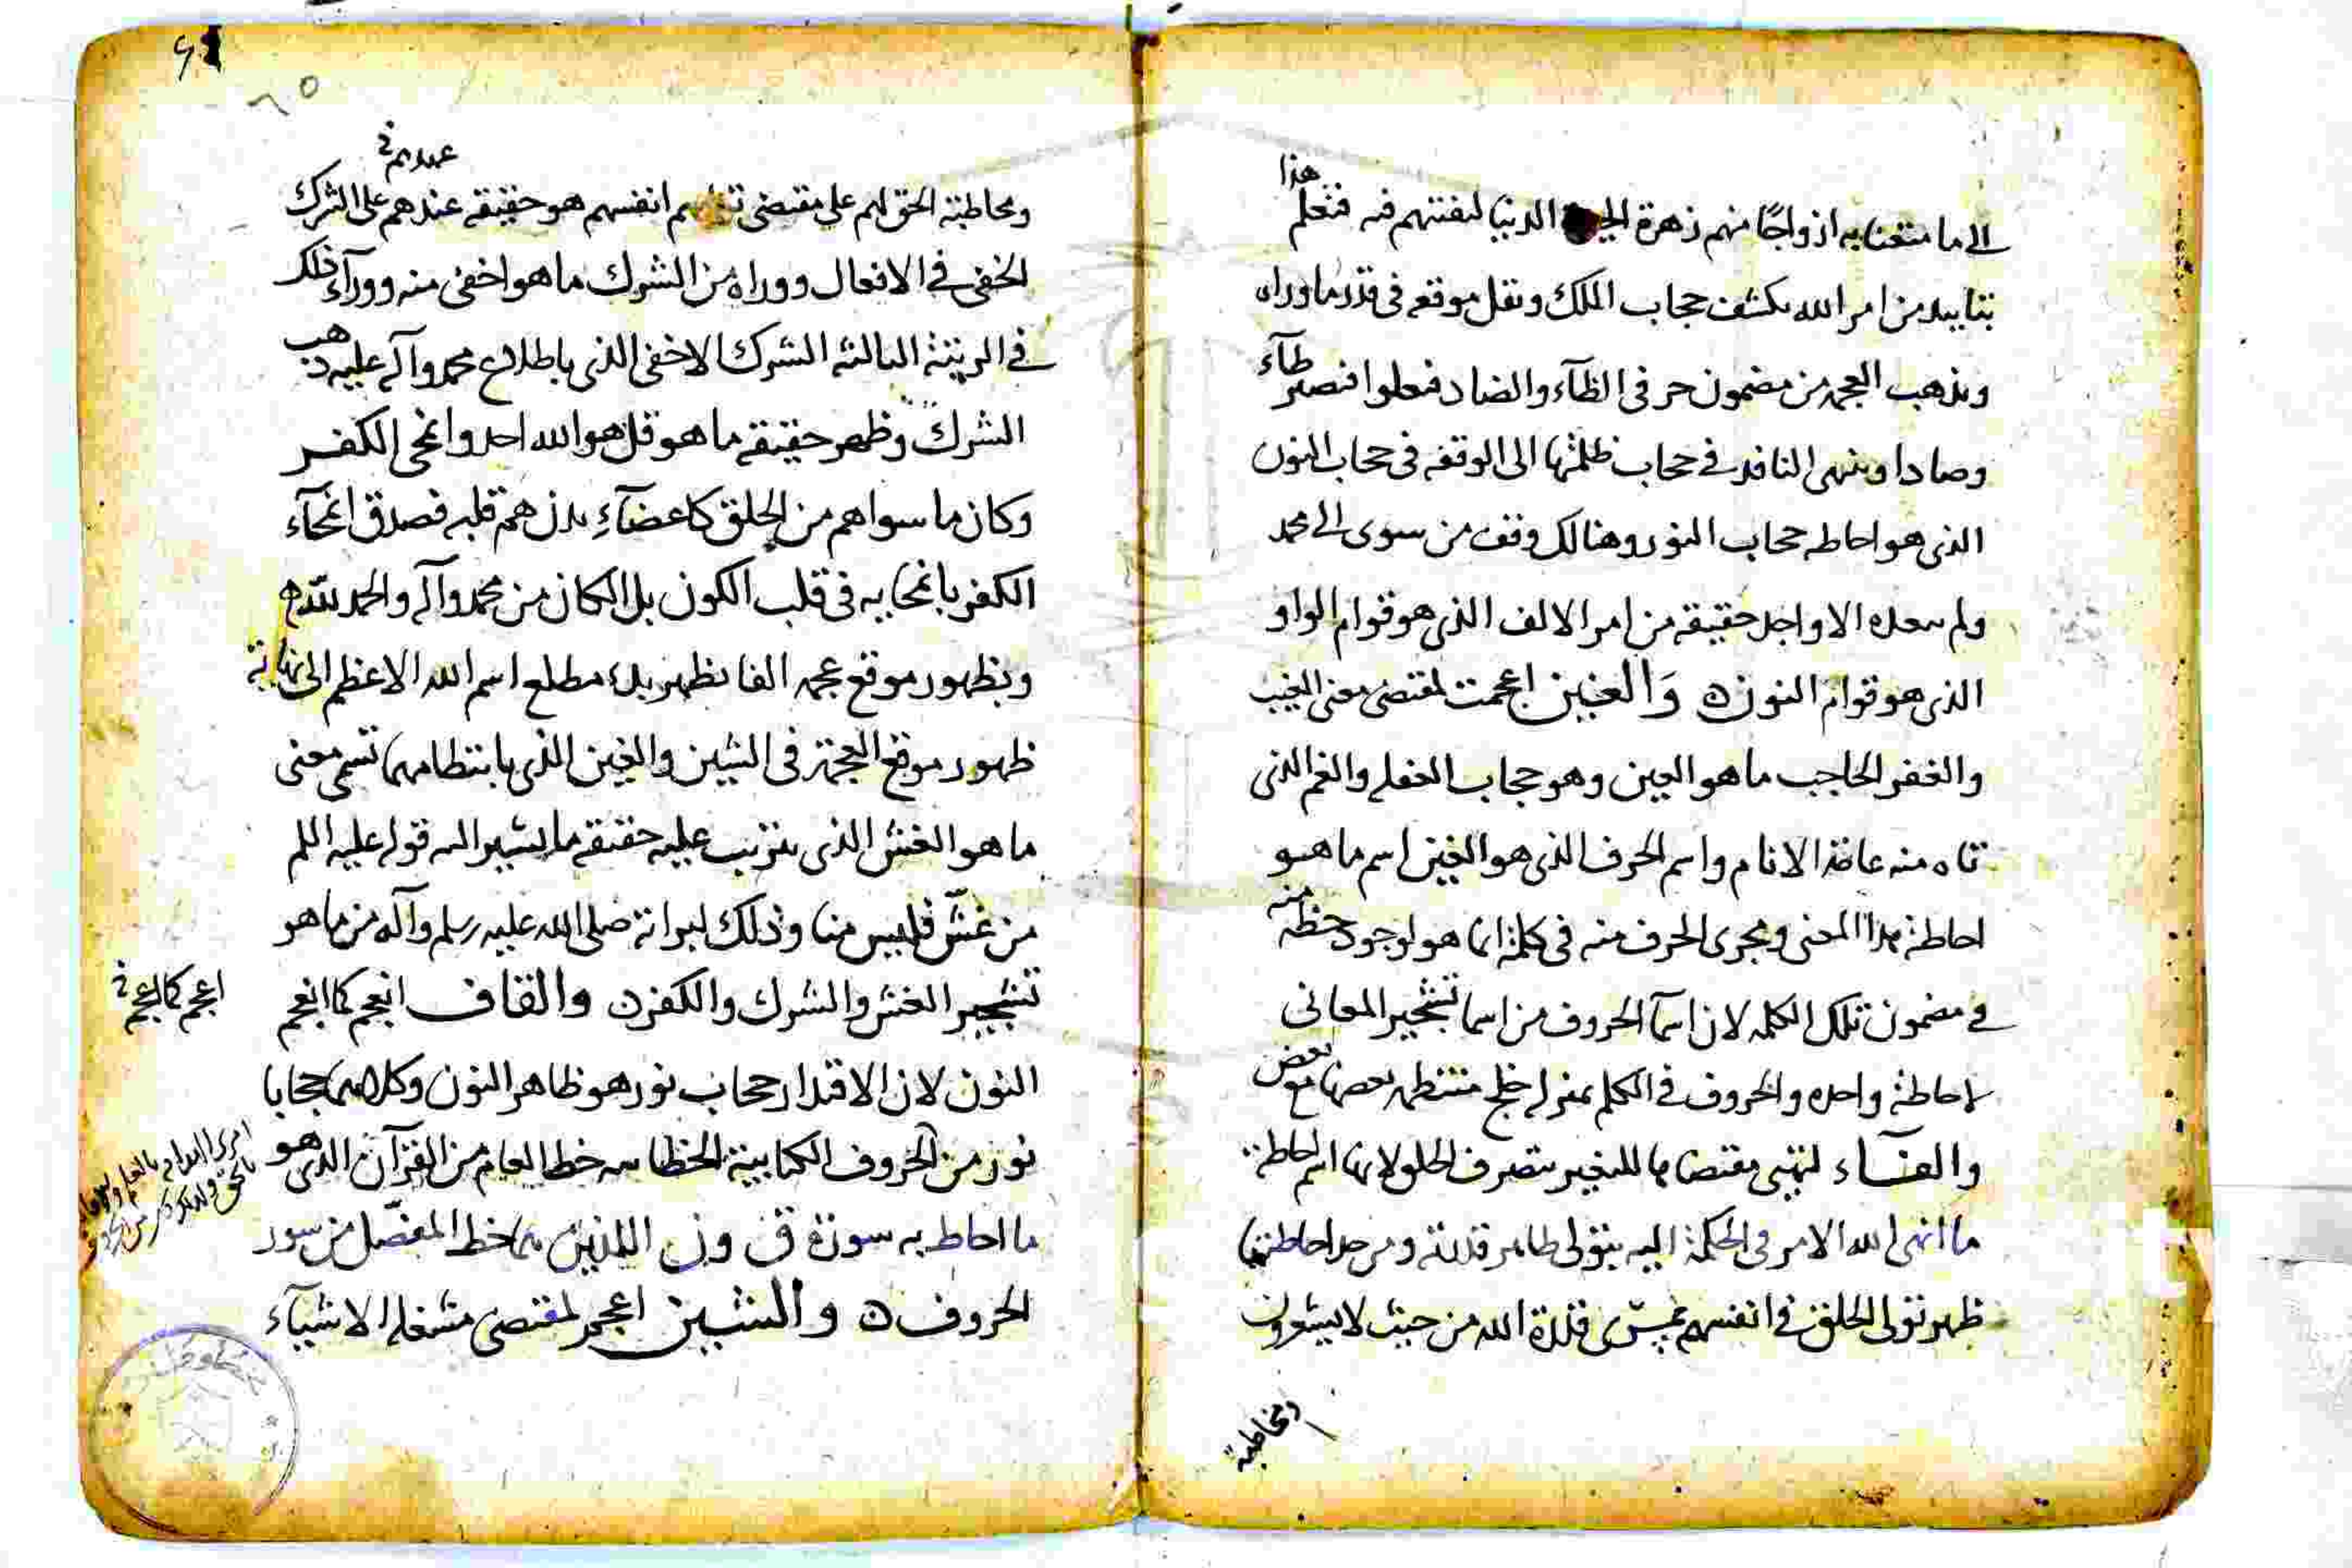 هذا
الى ما متعنا به ازواجًا منهم زهرة الدنيا لنفتنهم فيه فتعلم
بتاييد من امر الله بكشف حجاب الملك ونقل موقعه فى قدر ما وراه
ويذهب العجمه من مضمون حرفى الظآء والضاد فتصير طآء
وصادا وينهى النافد فى حجاب ظلمتها الى الوقفه فى حجاب النون
الذى هو احاطه حجاب النور وهنالك وقف من سوى ال محمد
ولم الا واجد حقيقه من امر الالف الذى هو قوام الواو
الذى هو قوام النون ه وَالغين اعجمت لمقتضى معنى الغيب
والغفر الحاجب ما هو العين وهو حجاب الغفله والغم الذى
تاه منه عامة الانام واسم الحرف الذى هو الغين اسم ما هو
احاطة بهذا المعنى ومجرى الحرف منه فى كلمة انما هو لوجود حظه منه
فى مضمون تلك الكلمه لان اسمآ الحروف من اسما تشجير المعانى
باحاطة واحده والحروف فى الكلم بمنزله خلج منتظمه بعضها مع بعض
والضآء لمقتضاها للتغير بتصرف الخلق لانها اسم لاحاطة
ما انهى الله الامر فى الحكمة اليه بتولى ظاهر قدرته ومن حد احاطتها
ظهر تولى الخلق فى انفسهم قدرة الله من حيث لا يشعرون
ومخاطبة
٦٥
ومخاطبة الحق لهم على مقتضى انفسهم هو حقيقه عندهم على الشرك
الخفى فى الافعال ووراه من الشرك ما هو اخفى منه وورآء ذلك
فى الرتبة الثالثة الشرك الاخفى الذى باطلاع محمد وآله عليه ذهب
الشرك وظهر حقيقه ما هو قل هو الله احد وانمحى الكفر
وكان ما سواهم من الخلق كاعضآء بدن هم قلبه فصدق انمحآء
الكفر بانمحايه فى قلب الكون بل الكمان من محمد وآله والحمد لله ه
وبظهور موقع عجمه الفا يظهر بدء مطلع اسم الله الاعظم الى نهاية
ظهور موقع العجمة فى الشين والغين الذى بانتظامهما تسمى معنى
ما هو الغش الذى يترتب عليه حقيقه ما يشير اليه قوله عليه السلم
من غشّ فليس منا وذلك لبراته صلى الله عليه وسلم وآله من ما هو
تشجير الغش والشرك والكفر ه والقاف انعجم كما انعجم
اعجم كما اعجم
النون لان الاقتدار حجاب نور هو ظاهر النون وكلاهما حجابا
نور من الحروف الكتابية خط العام من القرآن الذى هو
ما احاط به سورة ق ون اللذين هما خط المفصّل من سور
الحروف ه والشين اعجم لمقتضى مشغله الاشيآء